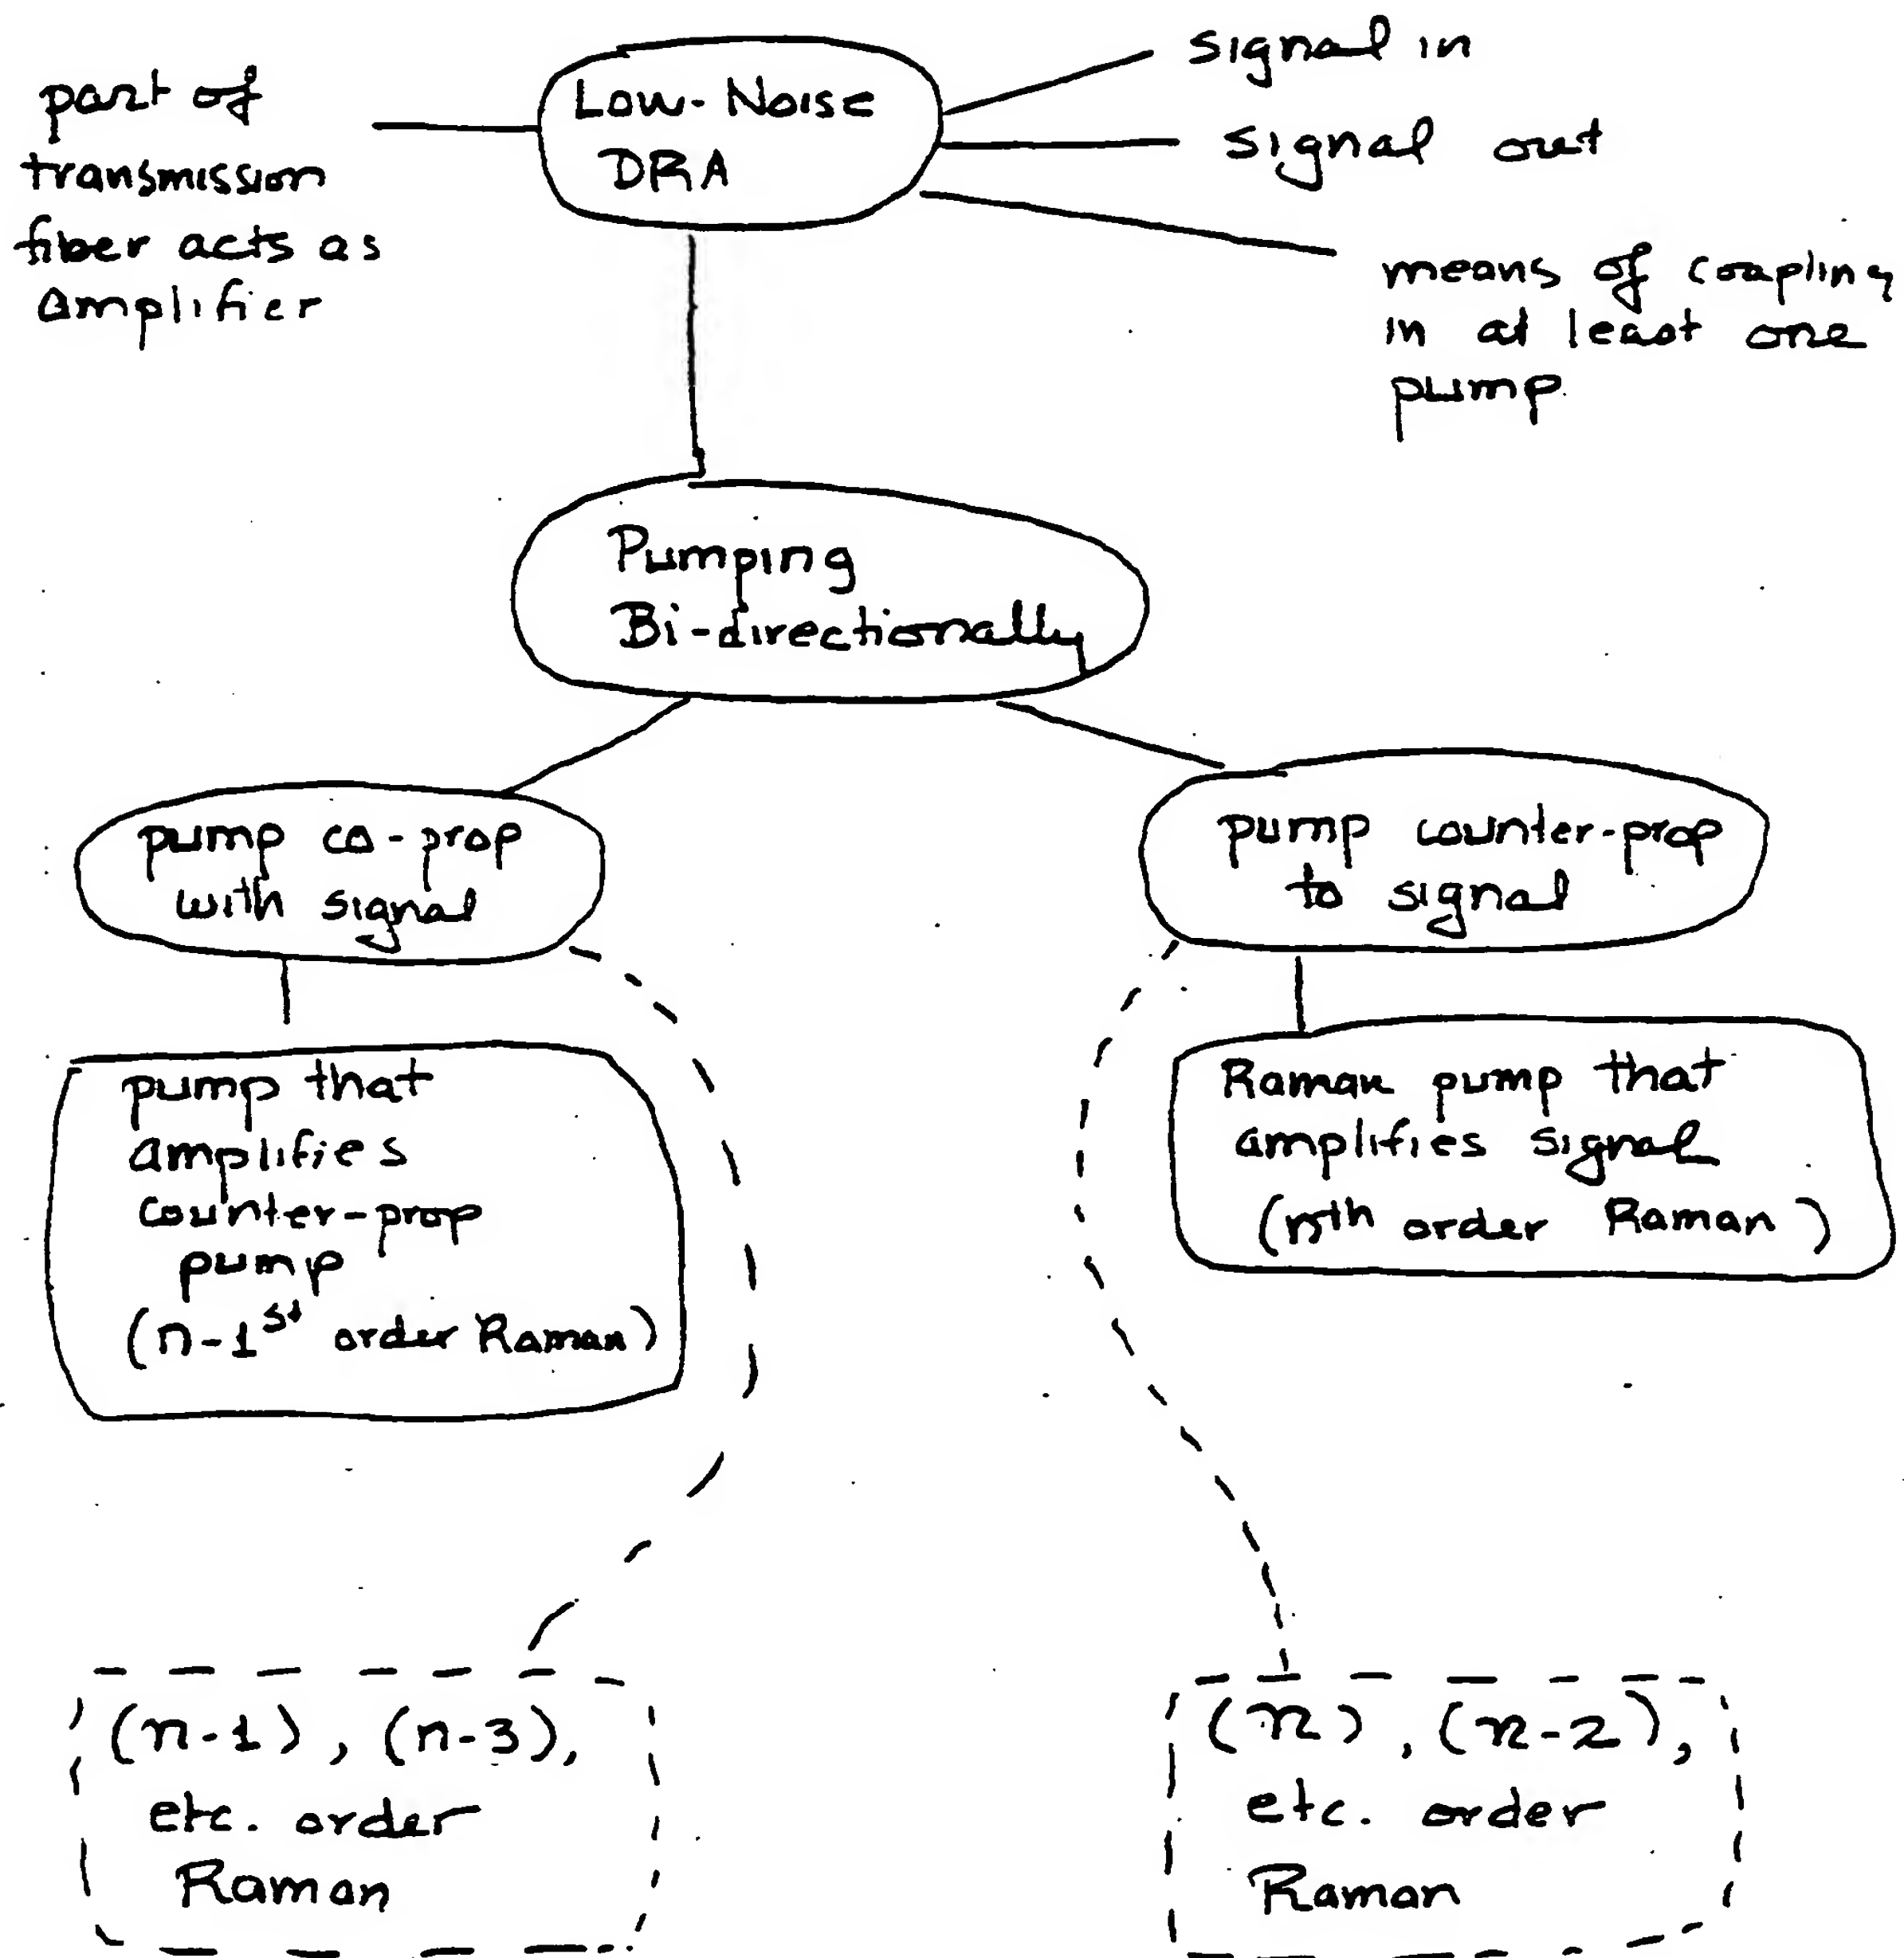 part of
transmission
fiber acts as
Amplifier
Low-Noise
DRA
signal in
signal out
means of coupling
in at least one
pump
Pumping
Bi-directionally
pump co-prop
with signal
pump counter-prop
to signal
pump that
amplifies
counter-prop
pump
(n-1st order Raman)
Raman pump that
amplifies signal
(nth order Raman)
(n-1), (n-3),
etc. order
Raman
(n), (n-2),
etc. order
Raman